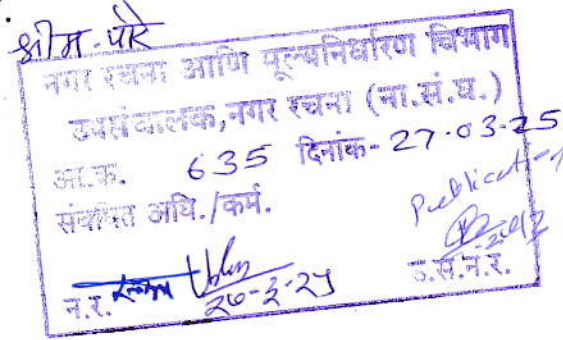 श्रीम. पोरे
नगर रचना आणि मूल्यनिर्धारण विभाग
उपसंचालक, नगर रचना (ना.सं.घ.)
आ.क्र. 635 दिनांक- 27-03-25
संबंधित अधि./कर्म.
Publication
न.र.
26-3-25
उ.स.न.र.